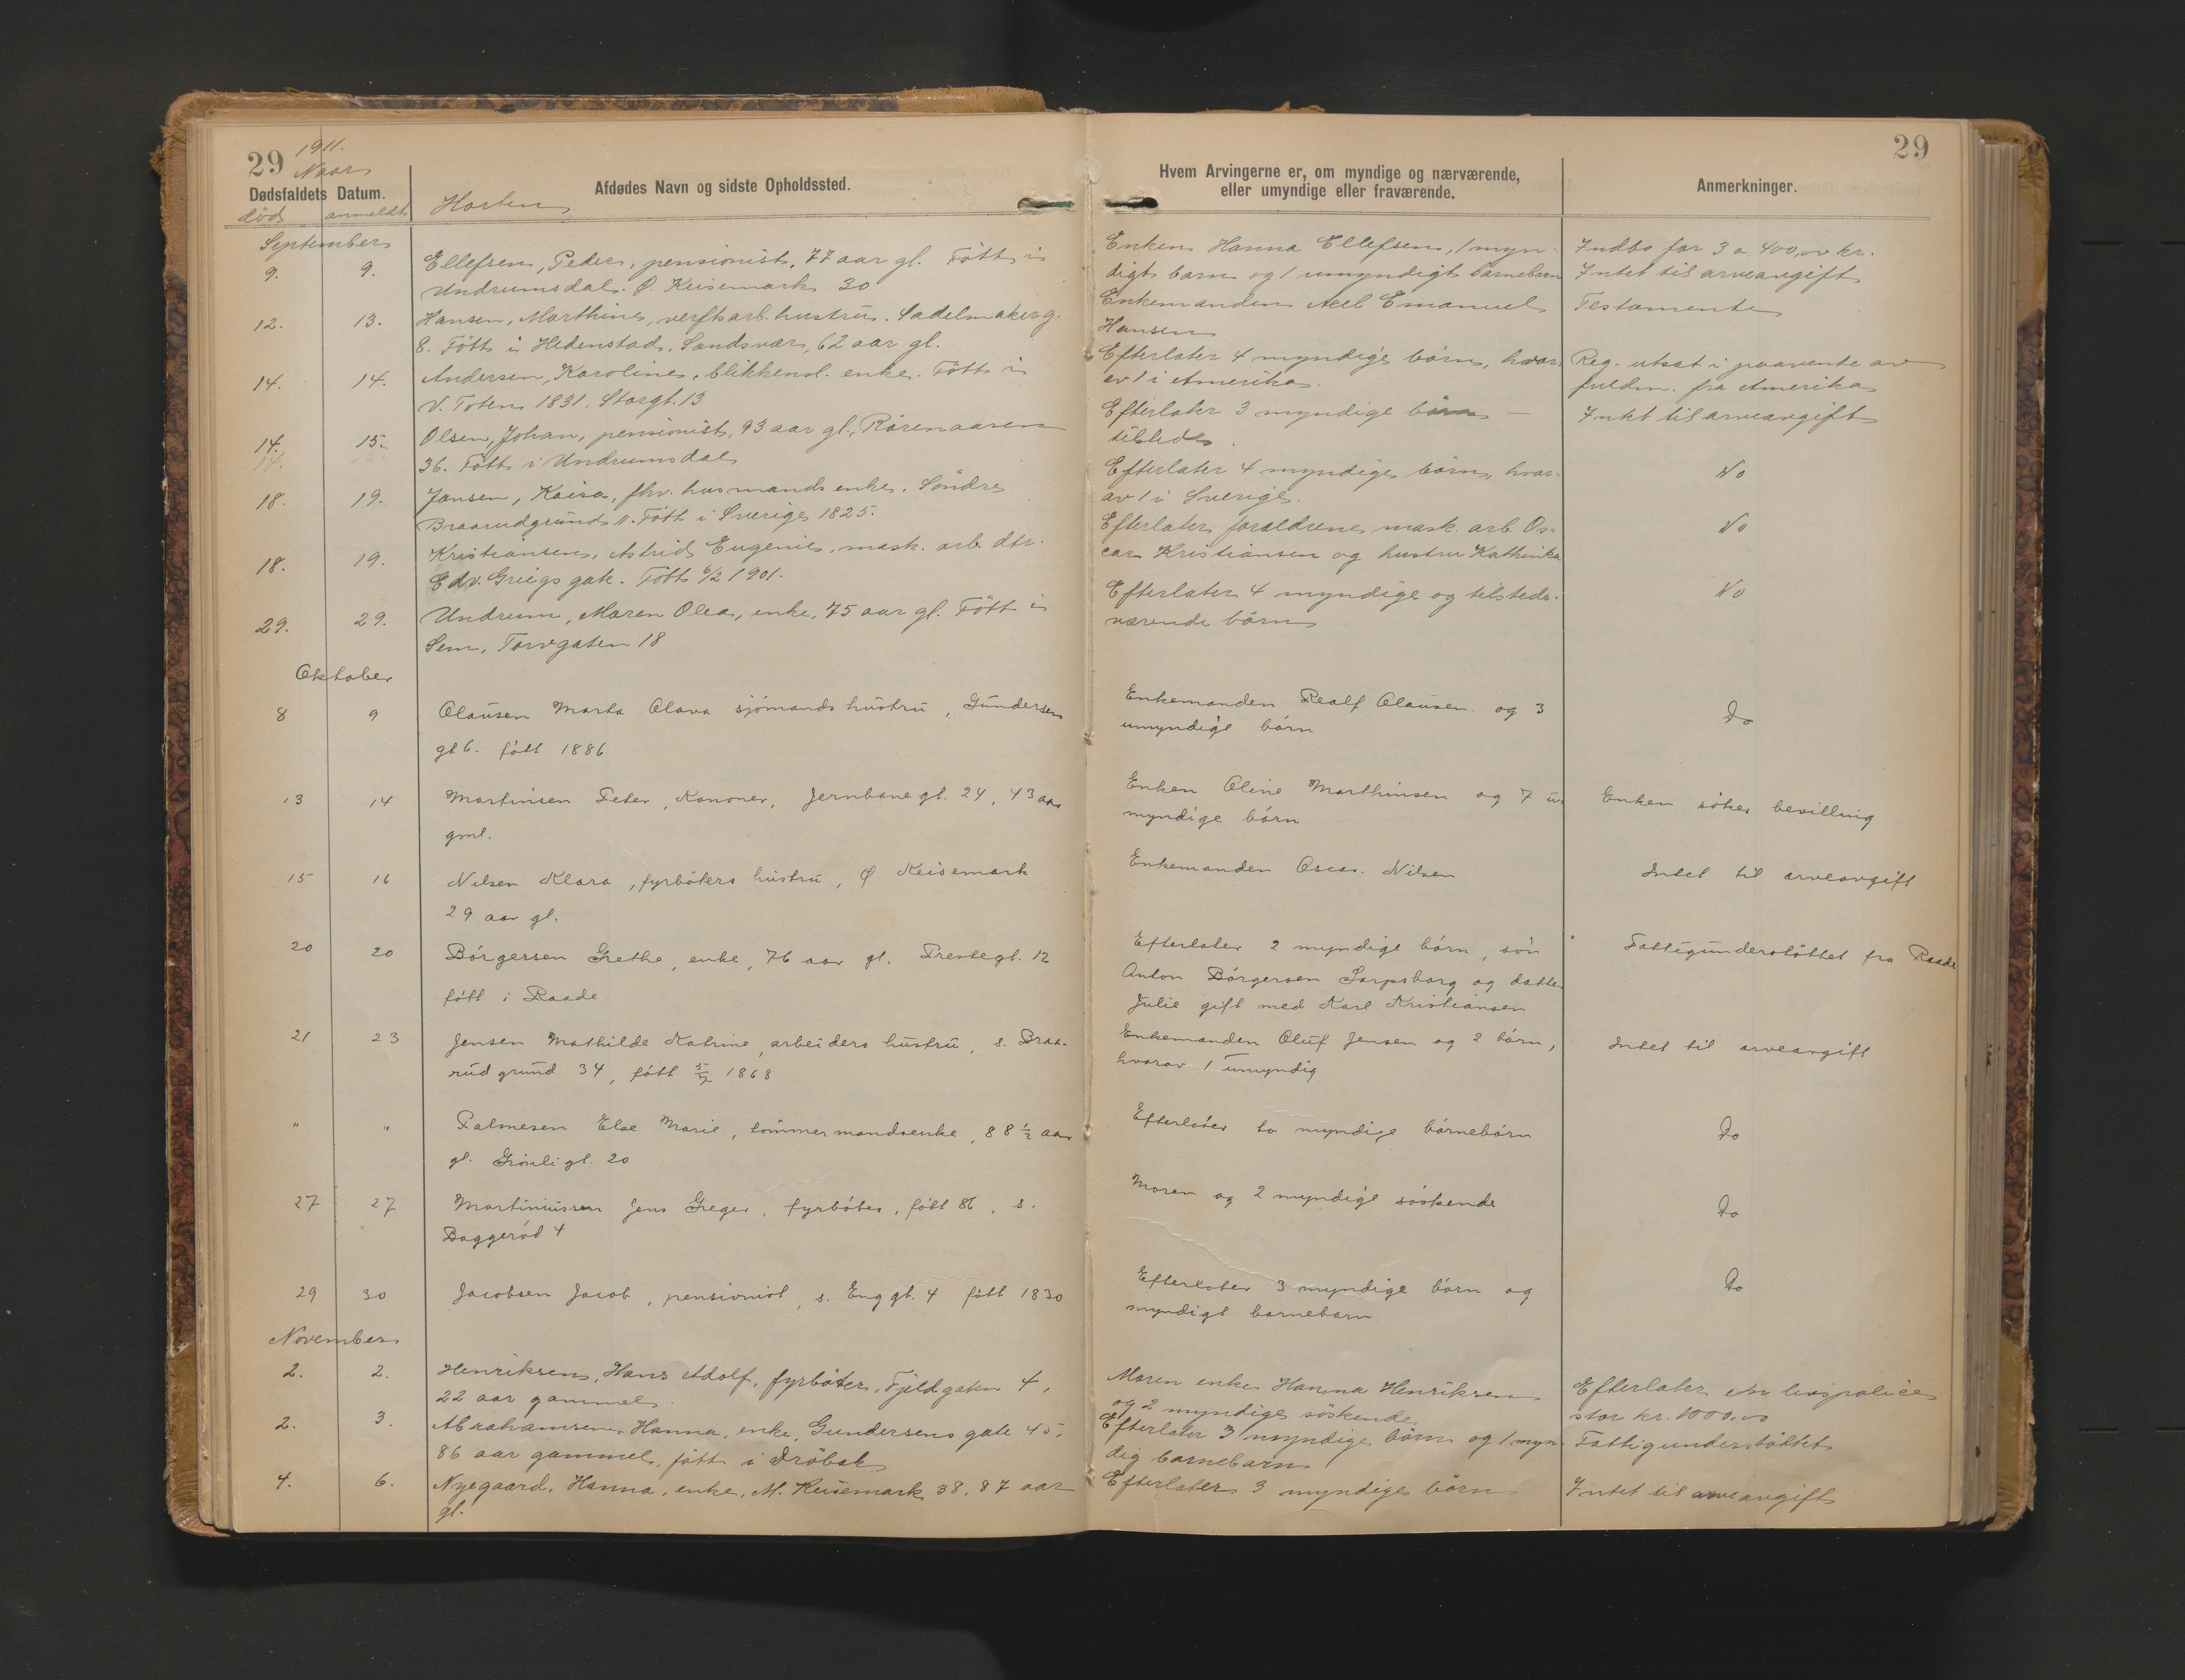 29 1911.
Naar
Dødsfaldets Datum.
død anmeldt
Afdødes Navn og sidste Opholdssted.
Horten
September
9. 9. Ellefsen, Peder, pensionist, 77 aar gl. Født i
Undrumsdal. Ø. Keisemark 30
12. 13. Hansen, Marthine, verftsarb. hustru. Sadelmakerg.
8. Født i Hedenstad, Sandsvær, 62 aar gl.
14. 14. Andersen, Karoline, blikkensl. enke. Født i
V. Toten 1831. Storgt. 13
14. 15. Olsen, Johan, pensionist, 93 aar gl., Rørenaasen
36. Født i Undrumsdal
18. 19. Jansen, Kaisa, fhv. husmands enke. Søndre
Braarudgrund 11. Født i Sverige 1825.
18. 19. Kristiansen, Astrid Eugenie, mask. arb. dtr.
Edv. Griegs gate. Født 6/2 1901.
29. 29. Undrum, Maren Olea, enke, 75 aar gl. Født i
Sem, Torvgaten 18
Oktober
8 9 Olausen Marta Olava sjømands hustru, Gundersens
gt 6. født 1886
13 14 Martinsen Peter, Kanoner, Jernbanegt. 24, 43 aar
gml.
15 16 Nilsen Klara, fyrbøters hustru, Ø. Keisemark
29 aar gl.
20 20 Børgersen Grethe, enke, 76 aar gl. Prestegt. 12
født i Raade
21 23 Jensen Mathilde Katrine, arbeiders hustru, s. Braa-
rud grund 34, født 5/7 1868
" " Palmesen Else Marie, tømmermandsenke, 88 1/2 aar
gl. Grønligt. 20
27 27 Martiniussen Jens Greger, fyrbøter, født 86, s.
Baggerød 4
29 30 Jacobsen Jacob, pensionist, s. Enggt. 4 født 1830
November
2. 2. Henriksen, Hans Adolf, fyrbøter, Fjeldgaten 4,
22 aar gammel.
2. 3. Abrahamsen Hanna, enke, Gundersens gate 45,
86 aar gammel, født i Drøbak
4. 6. Nyegaard, Hanna, enke, M. Keisemark 38, 87 aar
gl.
29
Hvem Arvingerne er, om myndige og nærværende,
eller umyndige eller fraværende.
Anmerkninger.
Enken Hanna Ellefsen, 1 myn- Indbo for 3 a 400,00 kr.
digt barn og 1 umyndigt barnebarn Intet til arveavgift
Enkemanden Axel Emanuel Testamente
Hansen
Efterlater 4 myndige børn, hvor- Reg. utsat i paavente av
av 1 i Amerika. fuldm. fra Amerika
Efterlater 3 myndige børn – Intet til arveavgift
tilstede.
Efterlater 4 myndige børn, hvor- Do
av 1 i Sverige.
Efterlater forældrene mask. arb. Os- Do
car Kristiansen og hustru Kathinka
Efterlater 4 myndige og tilstede- Do
værende børn
Enkemanden Realf Olausen og 3 Do
umyndige børn
Enken Oline Marthinsen og 7 u- Enken søker bevilling
myndige børn
Enkemanden Oscar Nilsen Intet til arveavgift
Efterlater 2 myndige børn, søn Fattigunderstøttet fra Raade
Anton Børgersen Sarpsborg og datter
Julie gift med Karl Kristiansen
Enkemanden Oluf Jensen og 2 børn, Intet til arveavgift
hvorav 1 umyndig
Efterlater to myndige børnebørn Do
Moren og 2 myndige søskende Do
Efterlater 3 myndige børn og Do
myndigt barnebarn
Moren enke Hanna Henriksen Efterlater en livspolice
og 2 myndige søskende stor kr. 1000.00
Efterlater 3 myndige børn og 1 myn- Fattigunderstøttet
dig barnebarn
Efterlater 3 myndige børn Intet til arveavgift